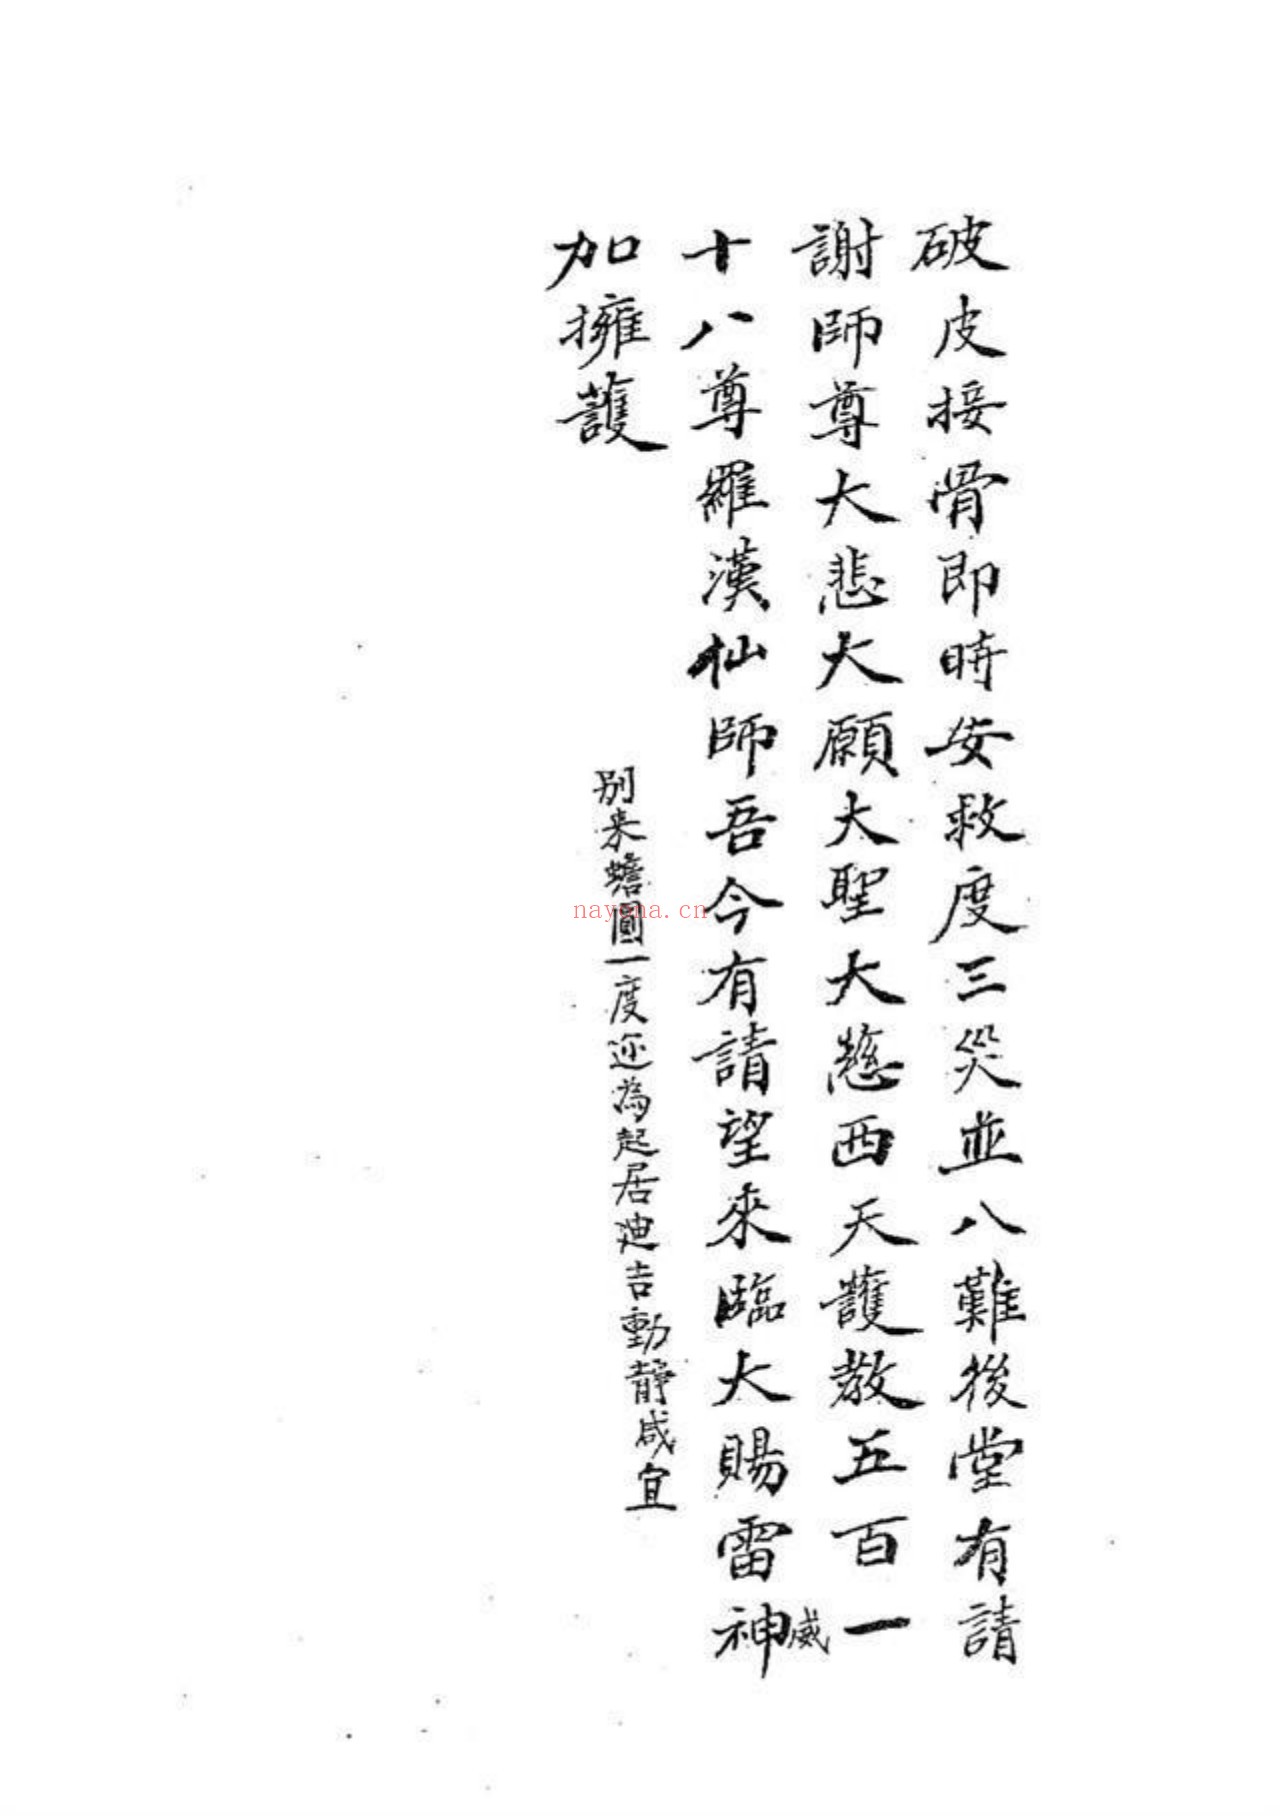 破皮接骨即時安救度三災並八難後堂有請
謝師尊大悲大願大聖大慈西天護教五百一
十八尊羅漢仙師吾今有請望來臨大賜雷神
威
加擁護
別來蟾圓一度迩為起居迪吉動靜咸宜
nayona.cn